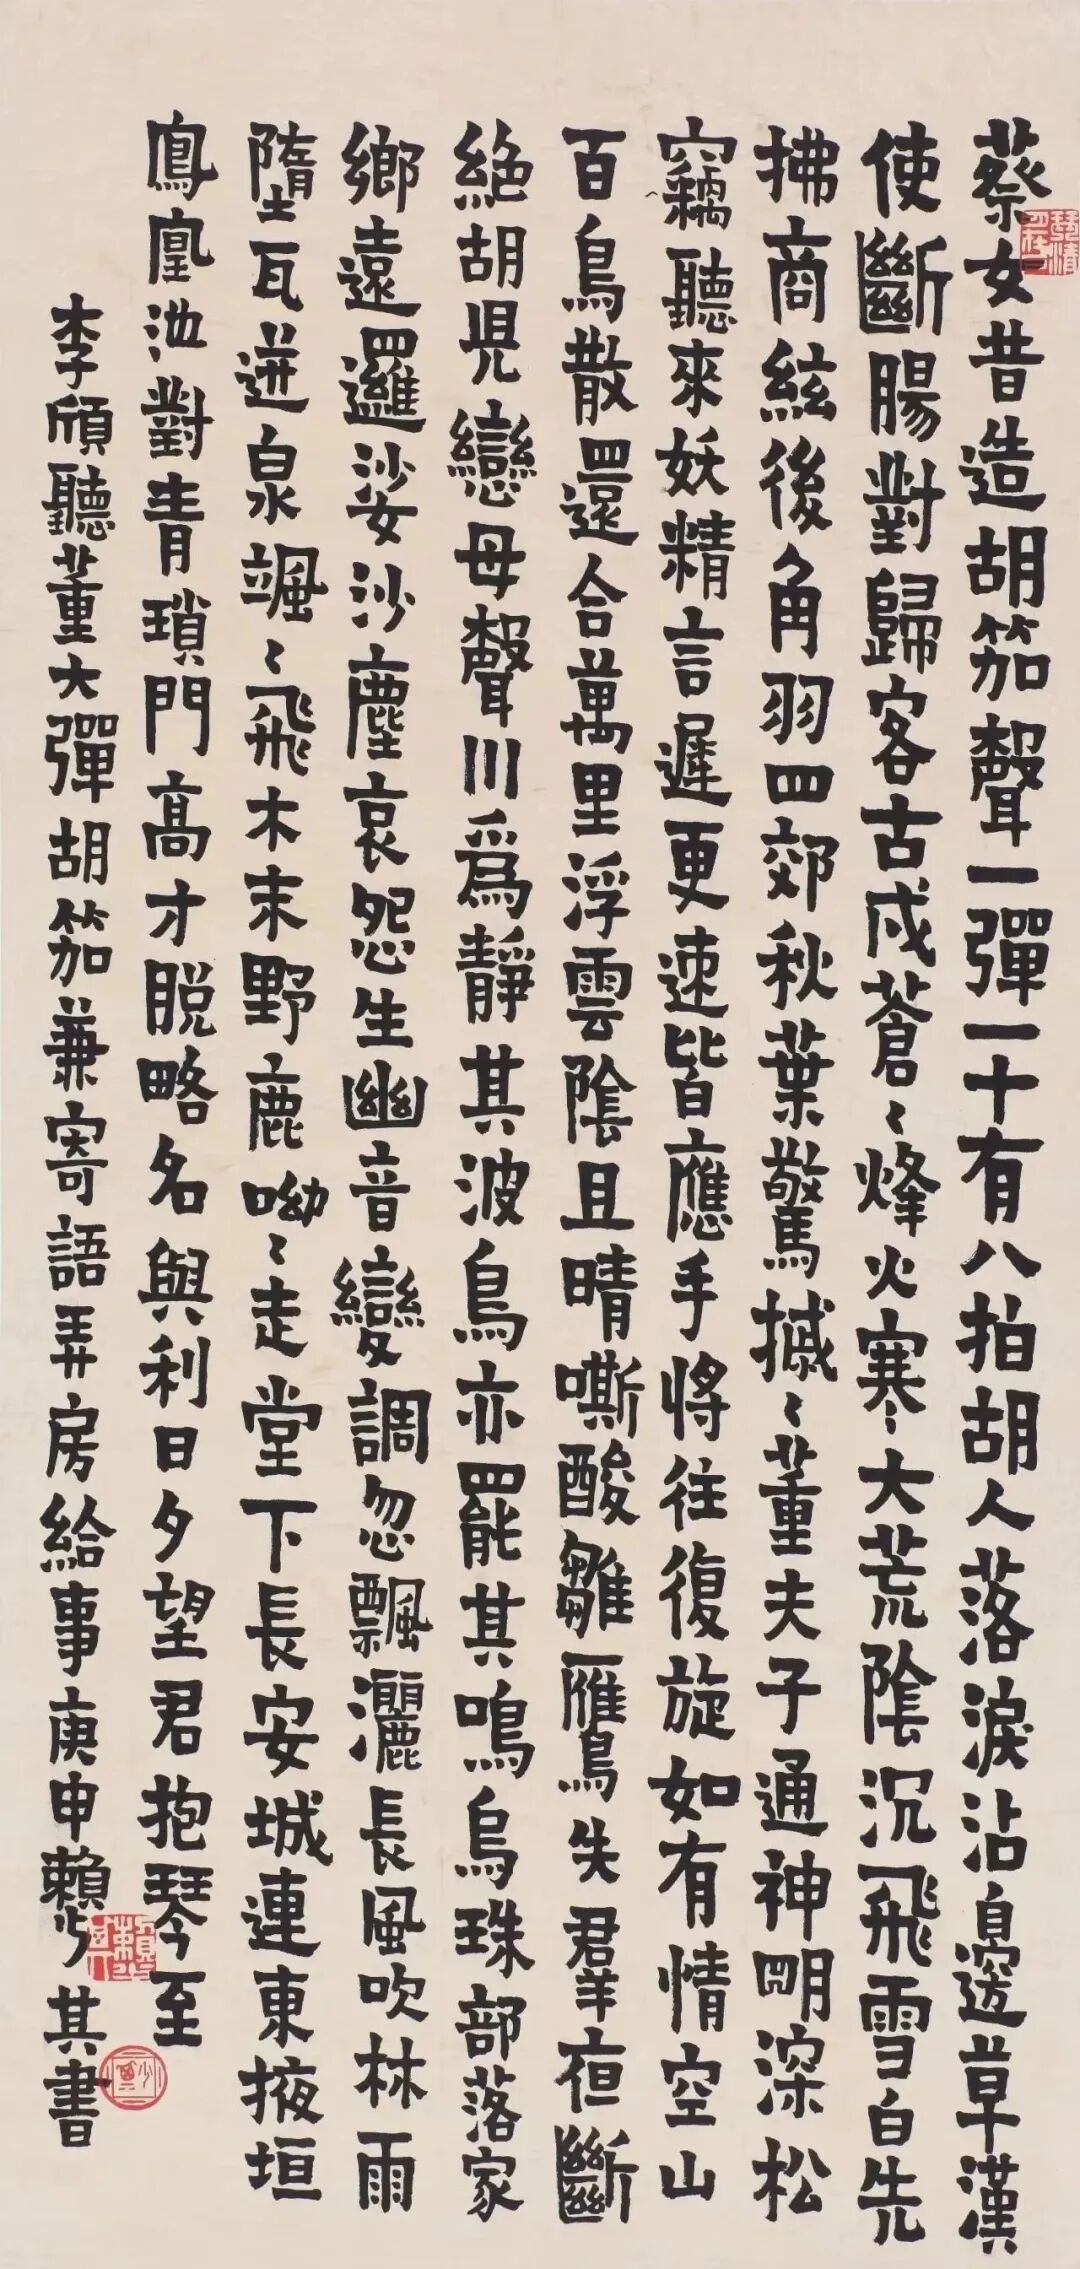 蔡女昔造胡笳聲一彈一十有八拍胡人落淚沾邊草漢
使斷腸對歸客古戍蒼〻烽火寒大荒陰沉飛雪白先
拂商絃後角羽四郊秋葉驚摵〻董夫子通神明深松
竊聽來妖精言遲更速皆應手將往復旋如有情空山
百鳥散還合萬里浮雲陰且晴嘶酸雛雁失群夜斷
絶胡児戀母聲川爲靜其波鳥亦罷其鳴烏珠部落家
鄉遠邏娑沙塵哀怨生幽音變調忽飄灑長風吹林雨
墮瓦迸泉颯〻飛木末野鹿呦〻走堂下長安城連東掖垣
鳳凰池對青瑣門高才脱略名與利日夕望君抱琴至
李頎聽董大彈胡笳兼寄語弄房給事庚申賴少其書